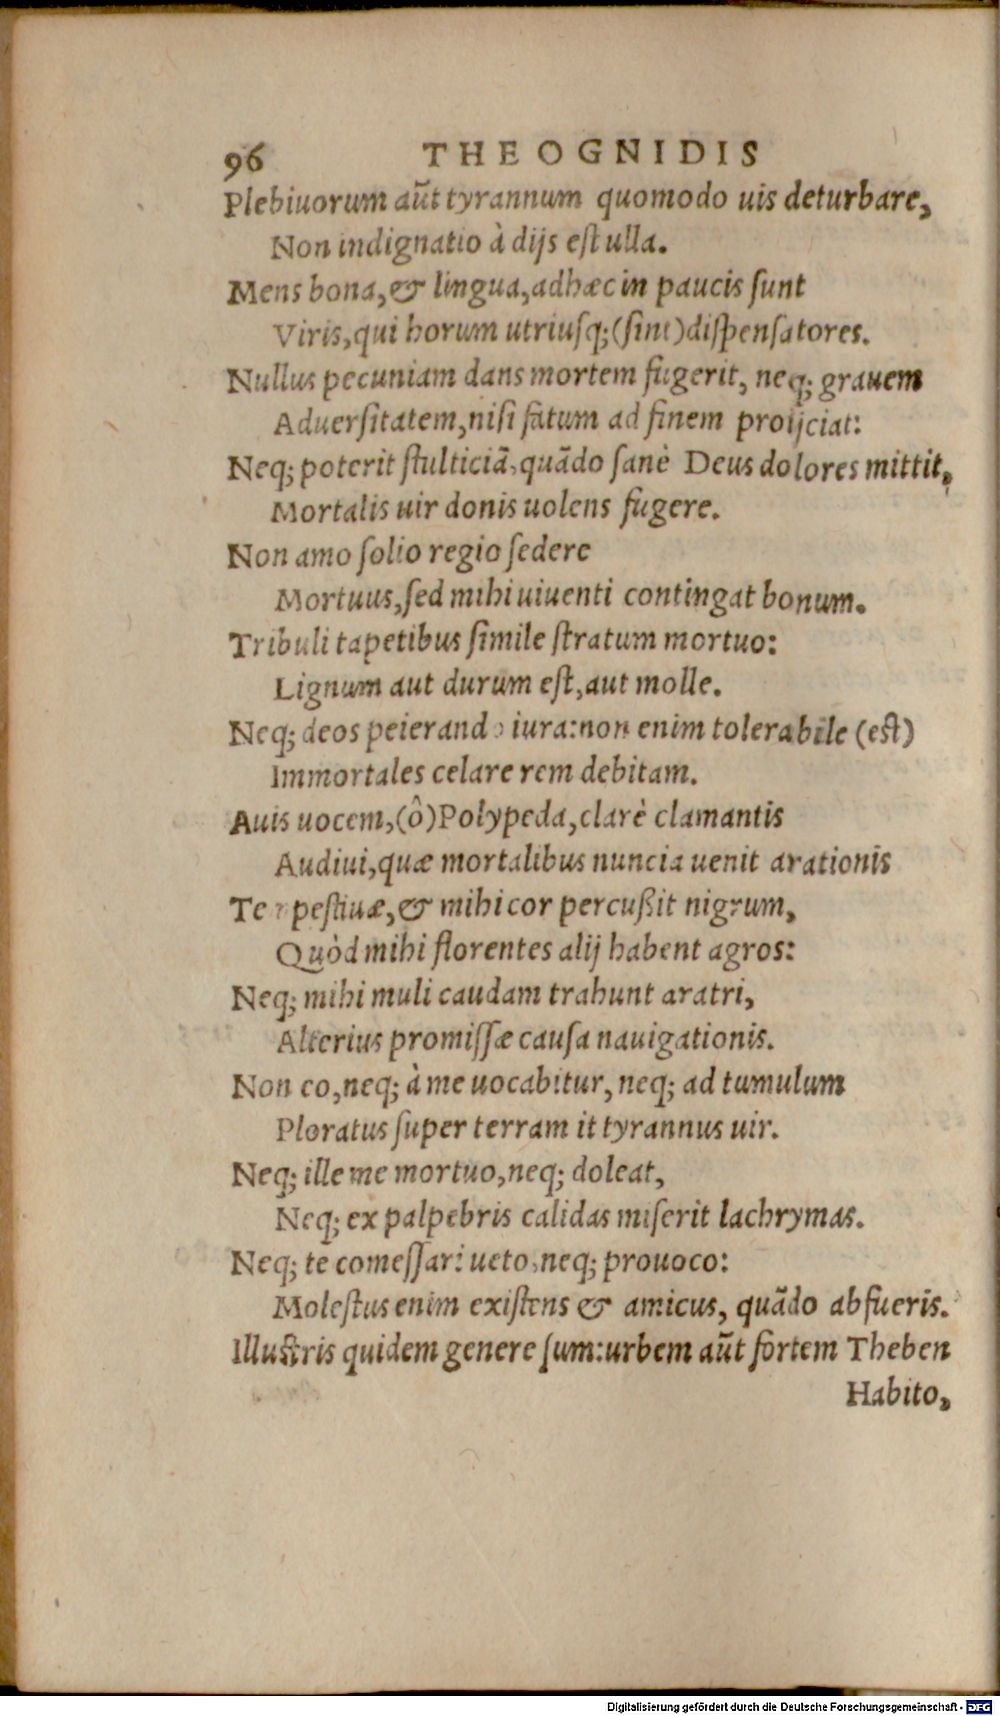 96 THEOGNIDIS
Plebiuorum aūt tyrannum quomodo uis deturbare,
Non indignatio à dijs eſt ulla.
Mens bona, & lingua, adhæc in paucis ſunt
Viris, qui horum utriuſq; (ſint) diſpenſatores.
Nullus pecuniam dans mortem fugerit, neq; grauem
Aduerſitatem, niſi fatum ad finem proijciat:
Neq; poterit ſtulticiā, quādo ſanè Deus dolores mittit,
Mortalis uir donis uolens fugere.
Non amo ſolio regio ſedere
Mortuus, ſed mihi uiuenti contingat bonum.
Tribuli tapetibus ſimile ſtratum mortuo:
Lignum aut durum eſt, aut molle.
Neq; deos peierando iura: non enim tolerabile (eſt)
Immortales celare rem debitam.
Auis uocem, (ô) Polypeda, clarè clamantis
Audiui, quæ mortalibus nuncia uenit arationis
Tempeſtiuæ, & mihi cor percußit nigrum,
Quòd mihi florentes alij habent agros:
Neq; mihi muli caudam trahunt aratri,
Alterius promiſſæ cauſa nauigationis.
Non eo, neq; à me uocabitur, neq; ad tumulum
Ploratus ſuper terram it tyrannus uir.
Neq; ille me mortuo, neq; doleat,
Neq; ex palpebris calidas miſerit lachrymas.
Neq; te comeſſari ueto, neq; prouoco:
Moleſtus enim exiſtens & amicus, quādo abfueris.
Illuſtris quidem genere ſum: urbem aūt fortem Theben
Habito,
Digitalisierung gefördert durch die Deutsche Forschungsgemeinschaft - DFG